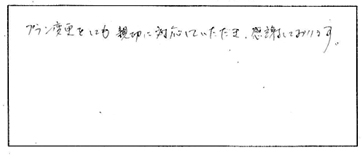 プラン変更にも親切に対応していただき、感謝しております。